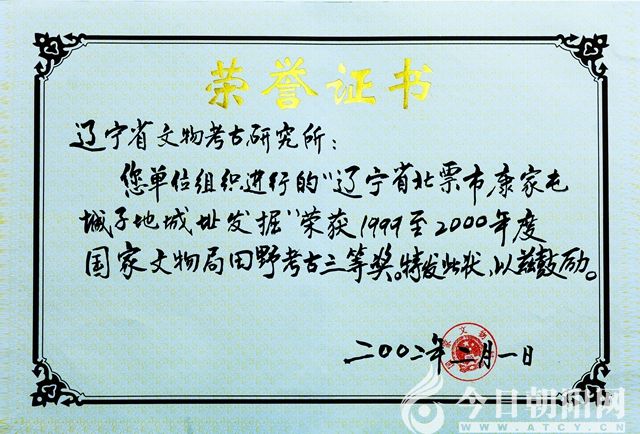 荣誉证书
辽宁省文物考古研究所：
您单位组织进行的"辽宁省北票市康家屯
城子地城址发掘"荣获1999至2000年度
国家文物局田野考古三等奖。特发此状，以兹鼓励。
二00二年二月一日
今日朝阳网
WWW.ATCY.CN